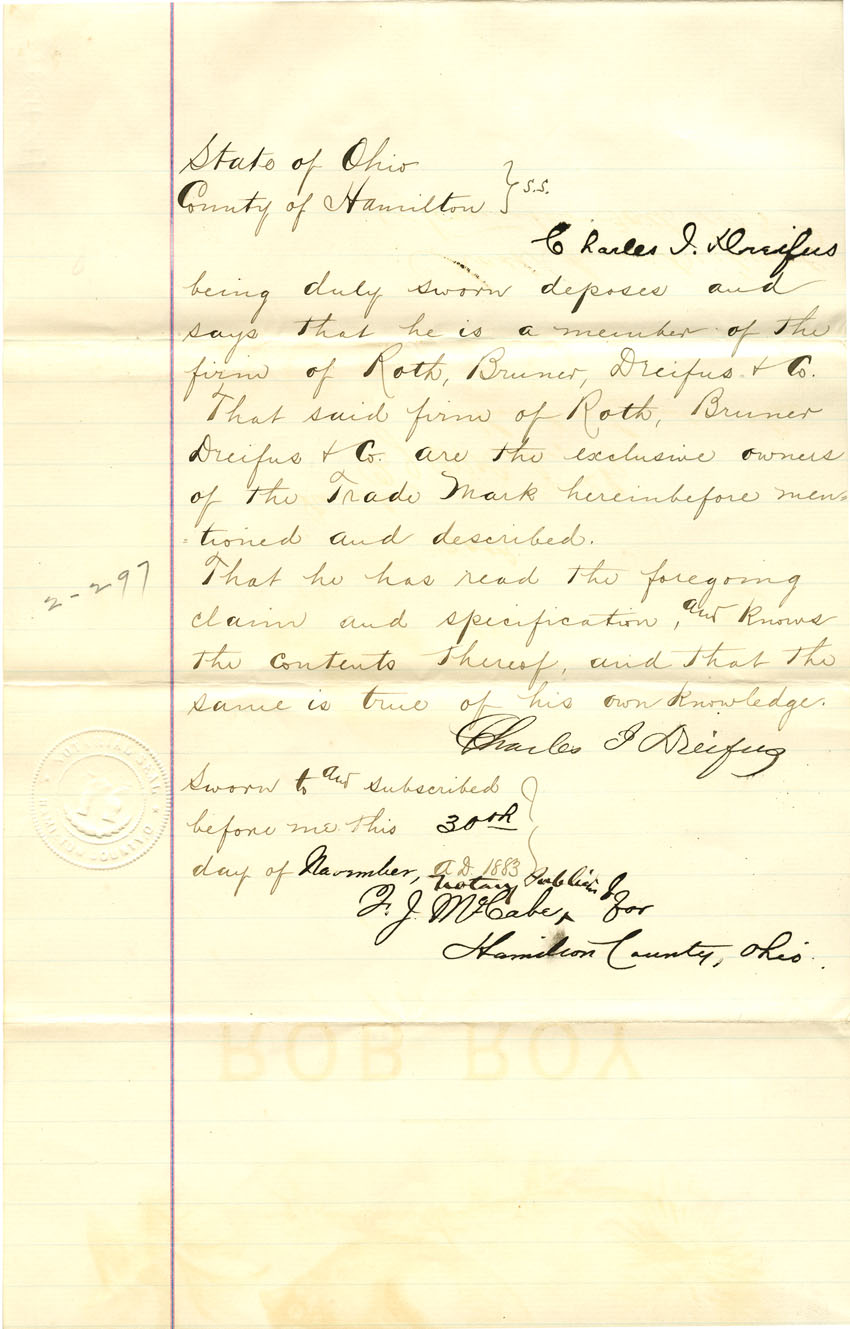 State of Ohio
County of Hamilton } S.S.
Charles I. Dreifus
being duly sworn deposes and
says that he is a member of the
firm of Roth, Bruner, Dreifus & Co.
That said firm of Roth, Bruner
Dreifus & Co. are the exclusive owners
of the Trade Mark hereinbefore men=
=tioned and described.
That he has read the foregoing
claim and specification, and knows
the contents thereof, and that the
same is true of his own knowledge.
Charles I Dreifus
2-297
NOTARIAL SEAL
HAMILTON COUNTY, O.
Sworn to and subscribed
before me this 30th
day of November, A.D. 1883
Notary Public
F. J. McCabe, for
Hamilton County, Ohio.
ROB ROY